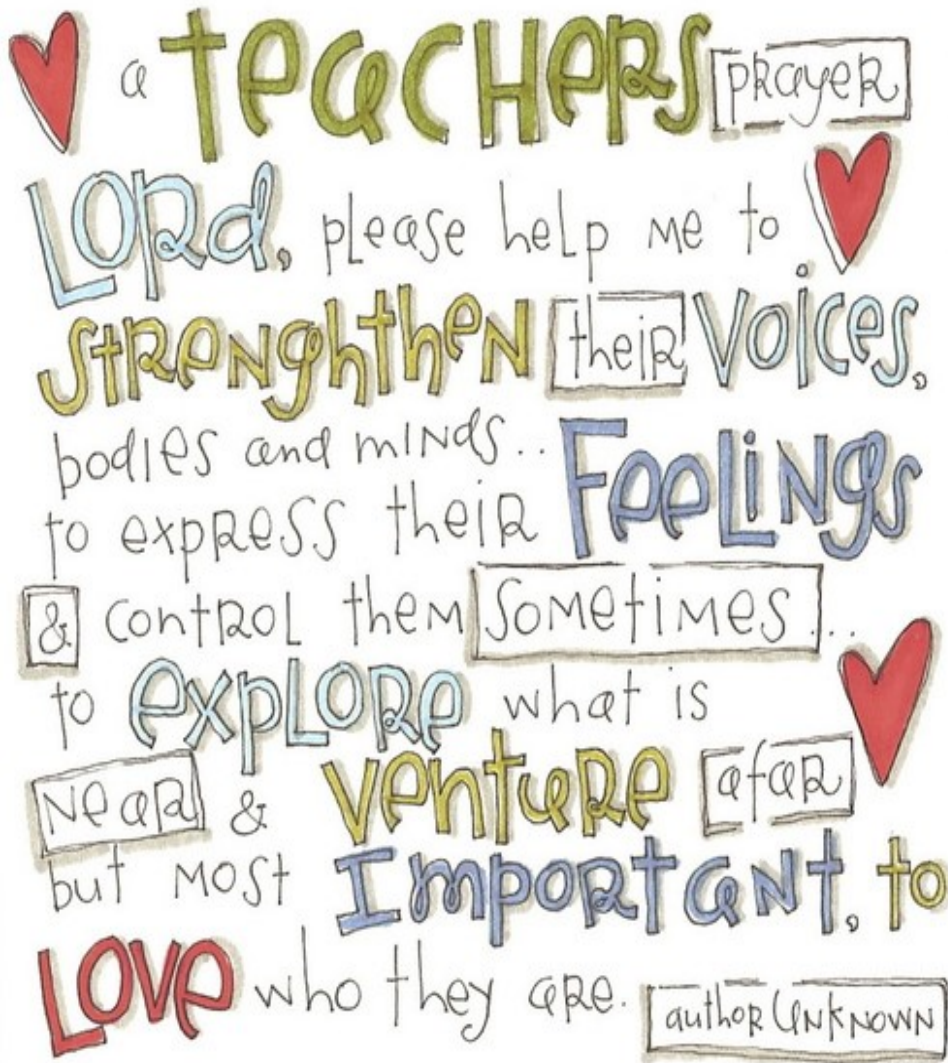 a teachers prayer
Lord, please help me to
strenghthen their voices,
bodies and minds..
to express their Feelings
& control them sometimes...
to explore what is
near & venture afar
but most Important, to
Love who they are.
author Unknown